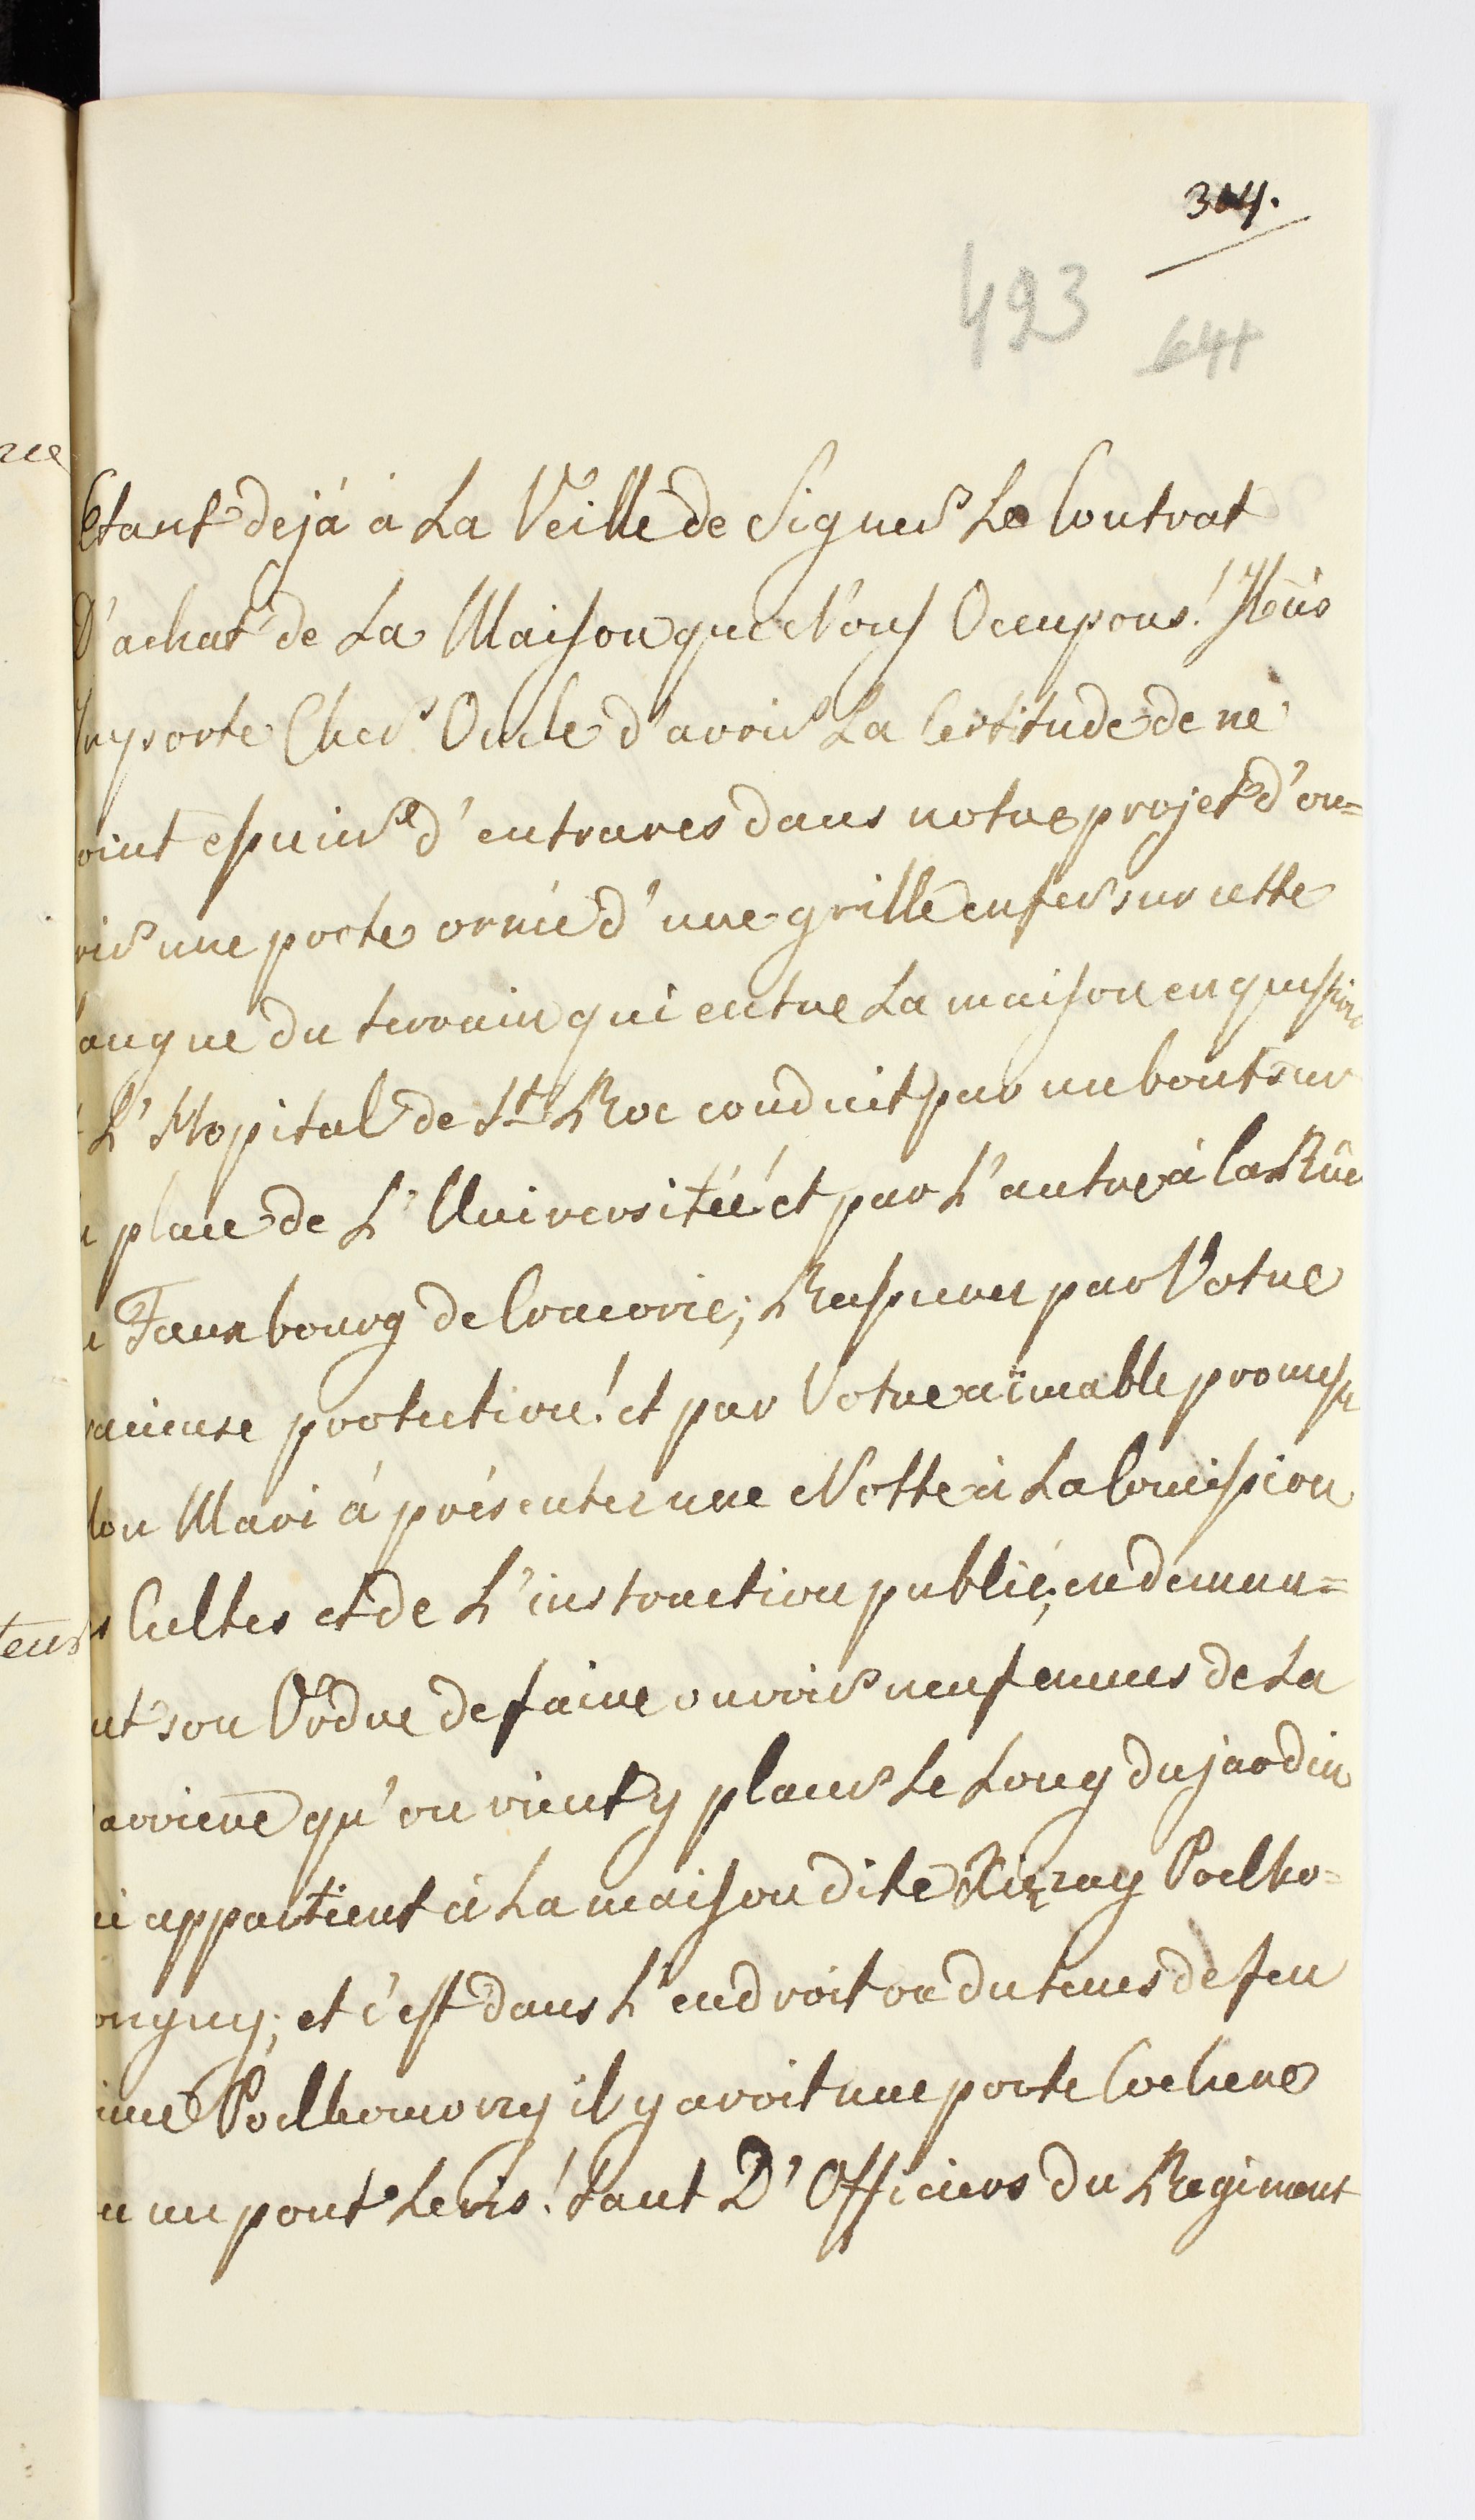 304.
493
644
Etant dejá á La Veille de Signer Le Contrat
D'achat de La Maison que Nous Ocupons! Nous
Importe Cher Oncle d'avoir La Certitude de ne
oint essuier d'entraves dans notre projet d'ou=
rir une porte orneé d'une grille en fer sur cette
langue du terrain qui entre La maison en question
L'Hopital de St. Roc conduit par un bout sur
place de L'Universiteé! et par L'autre á la Rüe
Fauxbourg de Cracovie; Rassuree par Votre
racieuse protection! et par Votre aimable promesse
Mon Mari á présenter une Notte á La Comission
s Cultes et de L'instruction publié; en deman=
nt son Ordre de faire ouvrir neuf aunes de La
barriere qu'on vient y placer Le Long du jardin
ui appartient á La maison dite Xiąząy Poelho=
ongny; et c'est dans L'endroit ou du tems de feu
ime Poelhonony il y avoit une porte Cochere
u un pont Levis! tant D'Officiers du Regiment
rce
teur